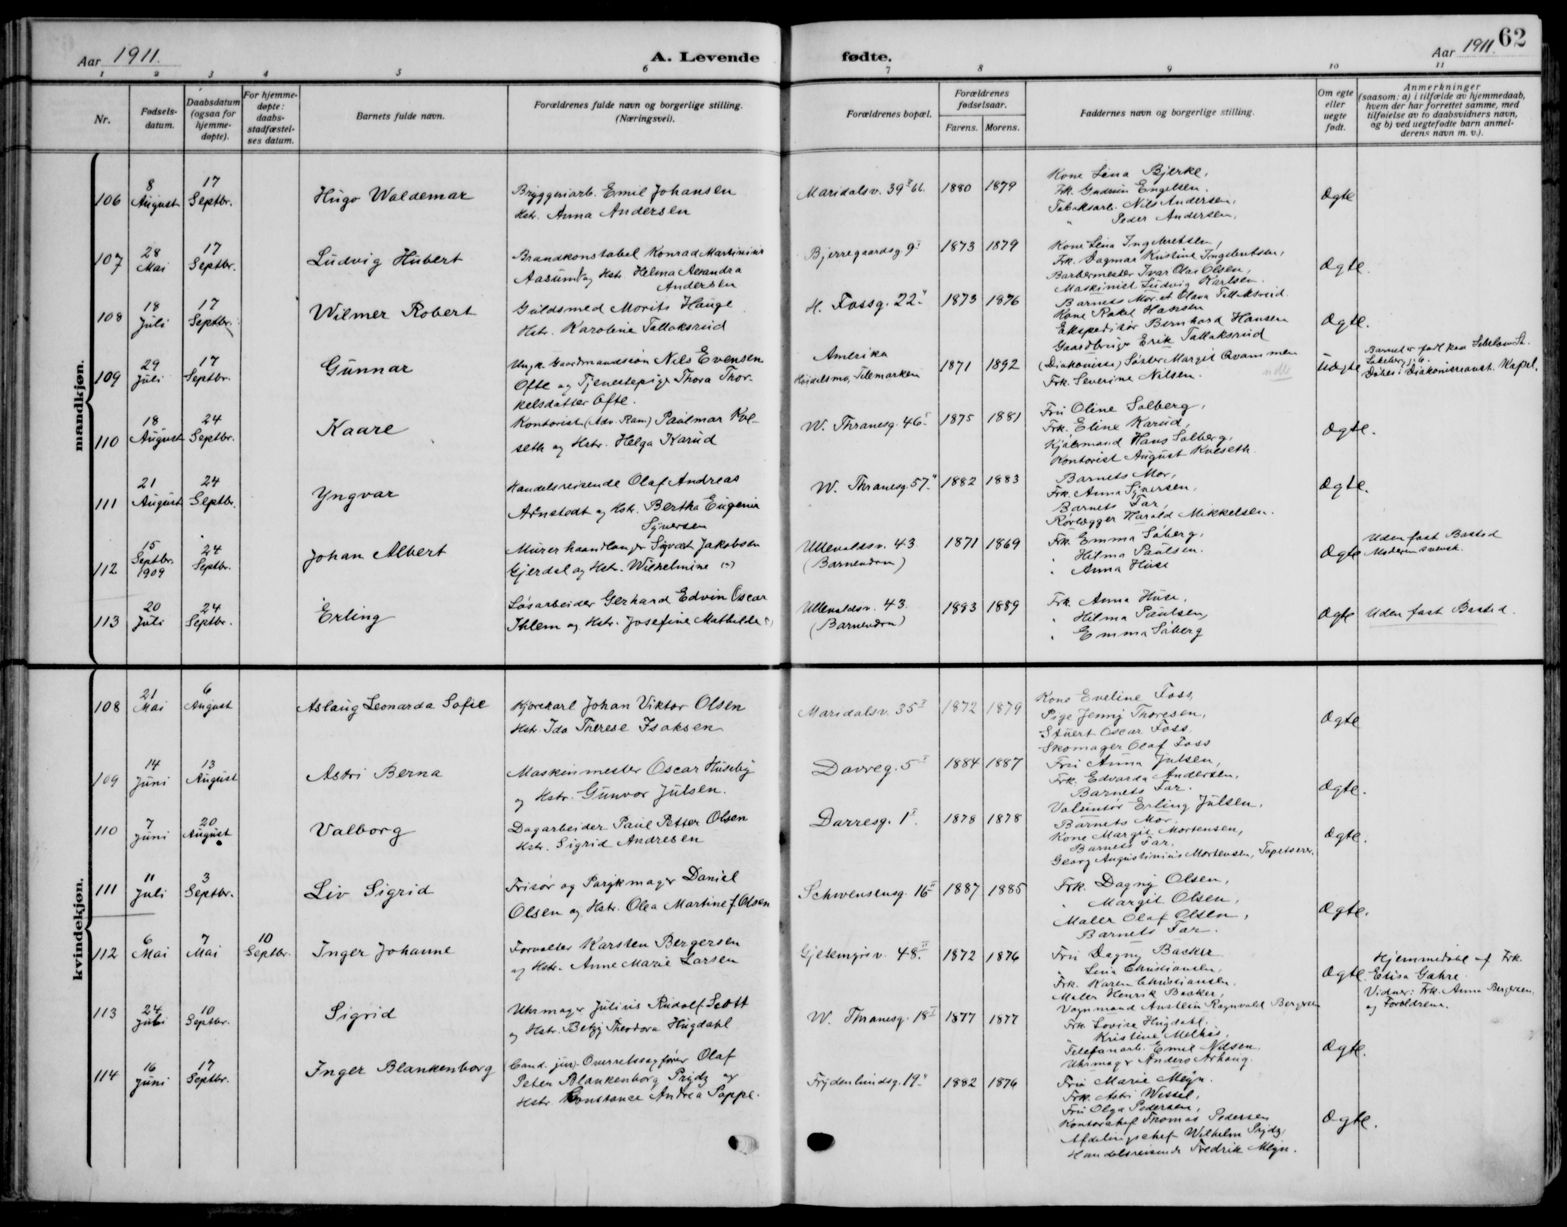 Aar 1911.
A. Levende
fødte.
Aar 1911.
62
1
2
3
4
5
6
7
8
9
10
11
Nr.
Fødsels-
datum.
Daabsdatum
(ogsaa for
hjemme-
døpte).
For hjemme-
døpte:
daabs-
stadfæstel-
ses datum.
Barnets fulde navn.
Forældrenes fulde navn og borgerlige stilling.
(Næringsvei).
Forældrenes bopæl.
Forældrenes
fødselsaar.
Farens.
Morens.
Faddernes navn og borgerlige stilling.
Om egte
eller
uegte
født.
Anmerkninger
(saasom: a) i tilfælde av hjemmedaab,
hvem der har forrettet samme, med
tilføielse av to daabsvidners navn,
og b) ved uegtefødte barn anmel-
derens navn m. v.).
mandkjøn.
106
8
August
17
Septbr.
Hugo Waldemar
Bryggeriarb. Emil Johansen
Hstr. Anna Andersen
Maridalsv. 39
1880
1879
Kone Lina Bjerke,
Frk. Gudrun Engelsen.
Tobaksarb. Nils Andersen,
" Peder Andersen,
Ægte
107
28
Mai
17
Septbr.
Ludvig Hubert
Brandkonstabel Konrad Martinius
Aasum og Hstr. Helma Alexandra
Andersen
Bjerregaardsg 9
1873
1879
Kone Lina Ingebretsen,
Frk. Dagmar Kristine Ingebretsen,
Barbermester Ivar Olai Olsen,
Maskinist Ludvig Karlsen.
Ægte.
108
18
Juli
17
Septbr.
Wilmer Robert
Guldsmed Morits Hauge
Hstr. Karoline Tallaksrud
H. Fossg. 22
1873
1876
Barnets Mor et Olava Tallaksrud
Kone Rakel Hansen
Ekspeditør Bernhard Hansen
Gaardbruger Erik Tallaksrud
Ægte.
109
29
Juli
17
Septbr.
Gunnar
Ungk. Gaardmandssøn Nils Evensen
Ofte og Tjenestepige Thora Thor-
kelsdatter Ofte.
Amerika
Høidalsmo, Telemarken
1871
1892
(Diakonisse) Søster Margit Qvammen
Frk. Severine Nilsen.
Uægte
110
18
August
24
Septbr.
Kaare
Kontorist (Adv. Ram) Paulmar Kol-
seth og Hstr. Helga Karud
W. Thranesg. 46
1875
1881
Fru Oline Solberg,
Frk. Eline Karud,
Kjøbmand Hans Solberg,
Kontorist August Kolseth.
Ægte.
111
21
August
24
Septbr.
Yngvar
Handelsreisende Olaf Andreas
Arnstedt og Hstr. Bertha Eugenie
Syversen
W. Thranesg. 57
1882
1883
Barnets Mor,
Frk. Anna Syversen,
Barnets Far,
Rørlægger Harald Mikkelsen.
Ægte.
112
15
Septbr.
1909
24
Septbr.
Johan Albert
Murerhaandlanger Sigvart Jakobsen
Gjerdal og Hstr. Wilhelmine
Ullevaldsv. 43
(Barnendrn)
1871
1869
Frk. Emma Søberg,
" Hilma Paulsen.
" Anna Huse
Ægte
Uden fast Bosted
Moderen svensk.
113
20
Juli
24
Septbr.
Erling
Løsarbeider Gerhard Edvin Oscar
Ihlem og Hstr. Josefine Mathilde
Ullevaldsv. 43
(Barnendrn)
1883
1889
Frk. Anna Huse,
" Hilma Paulsen,
" Emma Søberg
Ægte
Uden fast Bosted.
kvindekjøn.
108
21
Mai
6
August
Aslaug Leonarda Sofie
Kjørekarl Johan Viktor Olsen
Hstr. Ida Therese Isaksen
Maridalsv. 35
1872
1879
Kone Eveline Foss,
Pige Jenny Thoresen,
Stuert Oscar Foss.
Skomager Olaf Foss
Ægte
109
14
Juni
13
August
Astri Berna
Maskinmester Oscar Huseby
og Hstr. Gunvor Julsen.
Dovreg. 5
1884
1887
Fru Anna Julsen,
Frk. Edvarda Andersen,
Barnets Far.
Volontør Erling Julsen,
Ægte.
110
7
Juni
20
August
Valborg
Dagarbeider Paul Petter Olsen
Hstr. Sigrid Andresen
Darresg. 1
1878
1878
Barnets Mor,
Kone Margit Mortensen,
Barnets Far.
Georg Augustinius Mortensen, Tapetserer.
Ægte.
111
11
Juli
3
Septbr.
Liv Sigrid
Frisør og Parykmager Daniel
Olsen og Hstr. Olea Martine f. Olsen
Schwensensg. 16
1887
1885
Frk. Dagny Olsen,
" Margit Olsen,
Maler Olaf Olsen,
Barnets Far.
Ægte.
112
6
Mai
7
Mai
10
Septbr.
Inger Johanne
Forvalter Karsten Bergersen
og Hstr. Anne Marie Larsen
Gjetemyrsv. 48
1872
1876
Fru Dagny Backer
" Lina Christiansen,
Frk. Karen Christiansen.
Maler Henrik Backer,
Vognmand Anstein Ragnvald Bergersen
Ægte
Hjemmedøbt af Frk.
Elisa Gahre.
Vidner: Frk. Anna Bergersen,
og Forældrene
113
24
Juli
10
Septbr.
Sigrid
Uhrmager Julius Rudolf Scott
og Hstr. Betzy Theodora Hugdahl
W. Thranesg. 18
1877
1877
Frk. Lovise Hugdahl,
" Kristine Melhus,
Telefonarb. Emil Nilsen.
Uhrmager Anders Arhaug.
Ægte.
114
16
Juni
17
Septbr.
Inger Blankenborg
Cand. jur. Overretssagfører Olaf
Peter Blankenborg Prydz og
Hstr. Constance Andrea Poppe.
Frydenlundsg. 19
1882
1876
Fru Marie Meyn.
Frk. Astri Wessel,
Fru Olga Pedersen,
Kontorchef Thomas Pedersen
Afdelingschef Wilhelm Prydz,
Handelsreisende Fredrik Meyn.
Ægte.